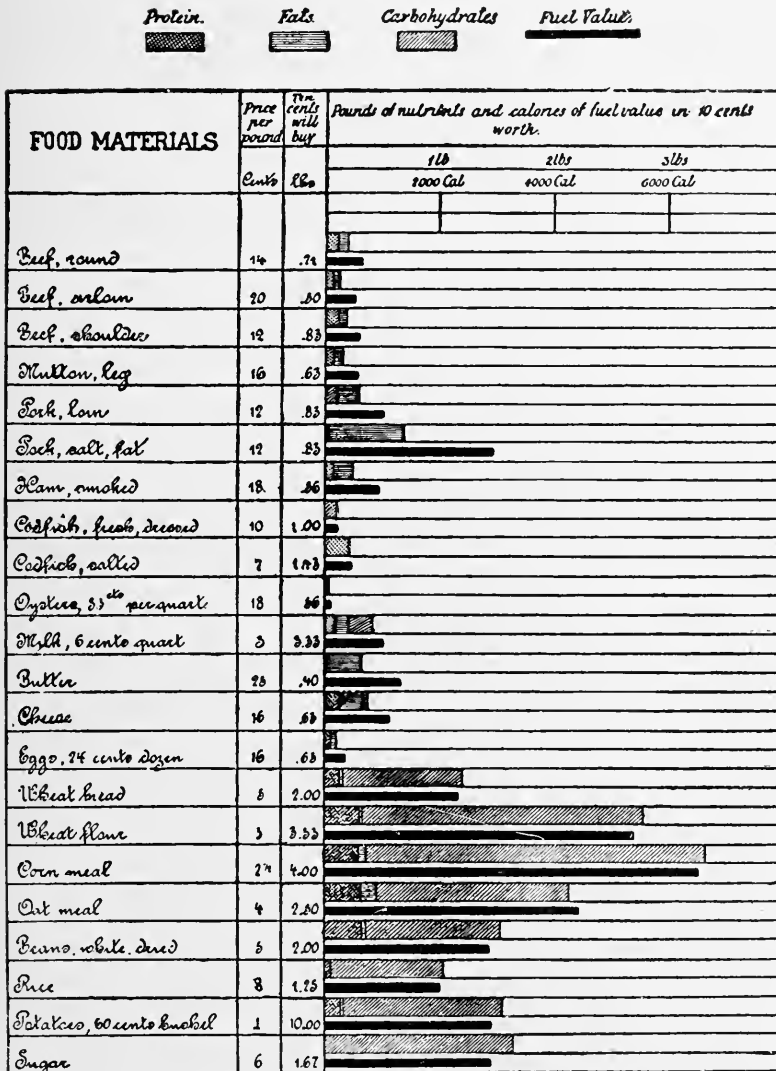 Protein. Fats. Carbohydrates Fuel Value.
FOOD MATERIALS
Price per pound
Ten cents will buy
Pounds of nutrients and calories of fuel value in 10 cents
worth.
1 lb 2 lbs 3 lbs
Cents lbs 2000 Cal 4000 Cal 6000 Cal
Beef, round 14
Beef, sirloin 20
Beef, shoulder 12 .83
Mutton, leg 16 .63
Pork, loin 12 .83
Pork, salt, fat 12 .83
Ham, smoked 18
Codfish, fresh, dressed 10 1.00
Codfish, salted 7
Oysters, 35 cts per quart 18
Milk, 6 cents quart 3 3.33
Butter .40
Cheese 16 .63
Eggs, 24 cents dozen 16 .63
Wheat bread 2.00
Wheat flour 3 3.33
Corn meal 4.00
Oat meal 4 2.50
Beans, white, dried 5 2.00
Rice 8 1.25
Potatoes, 60 cents bushel 1 10.00
Sugar 6 1.67